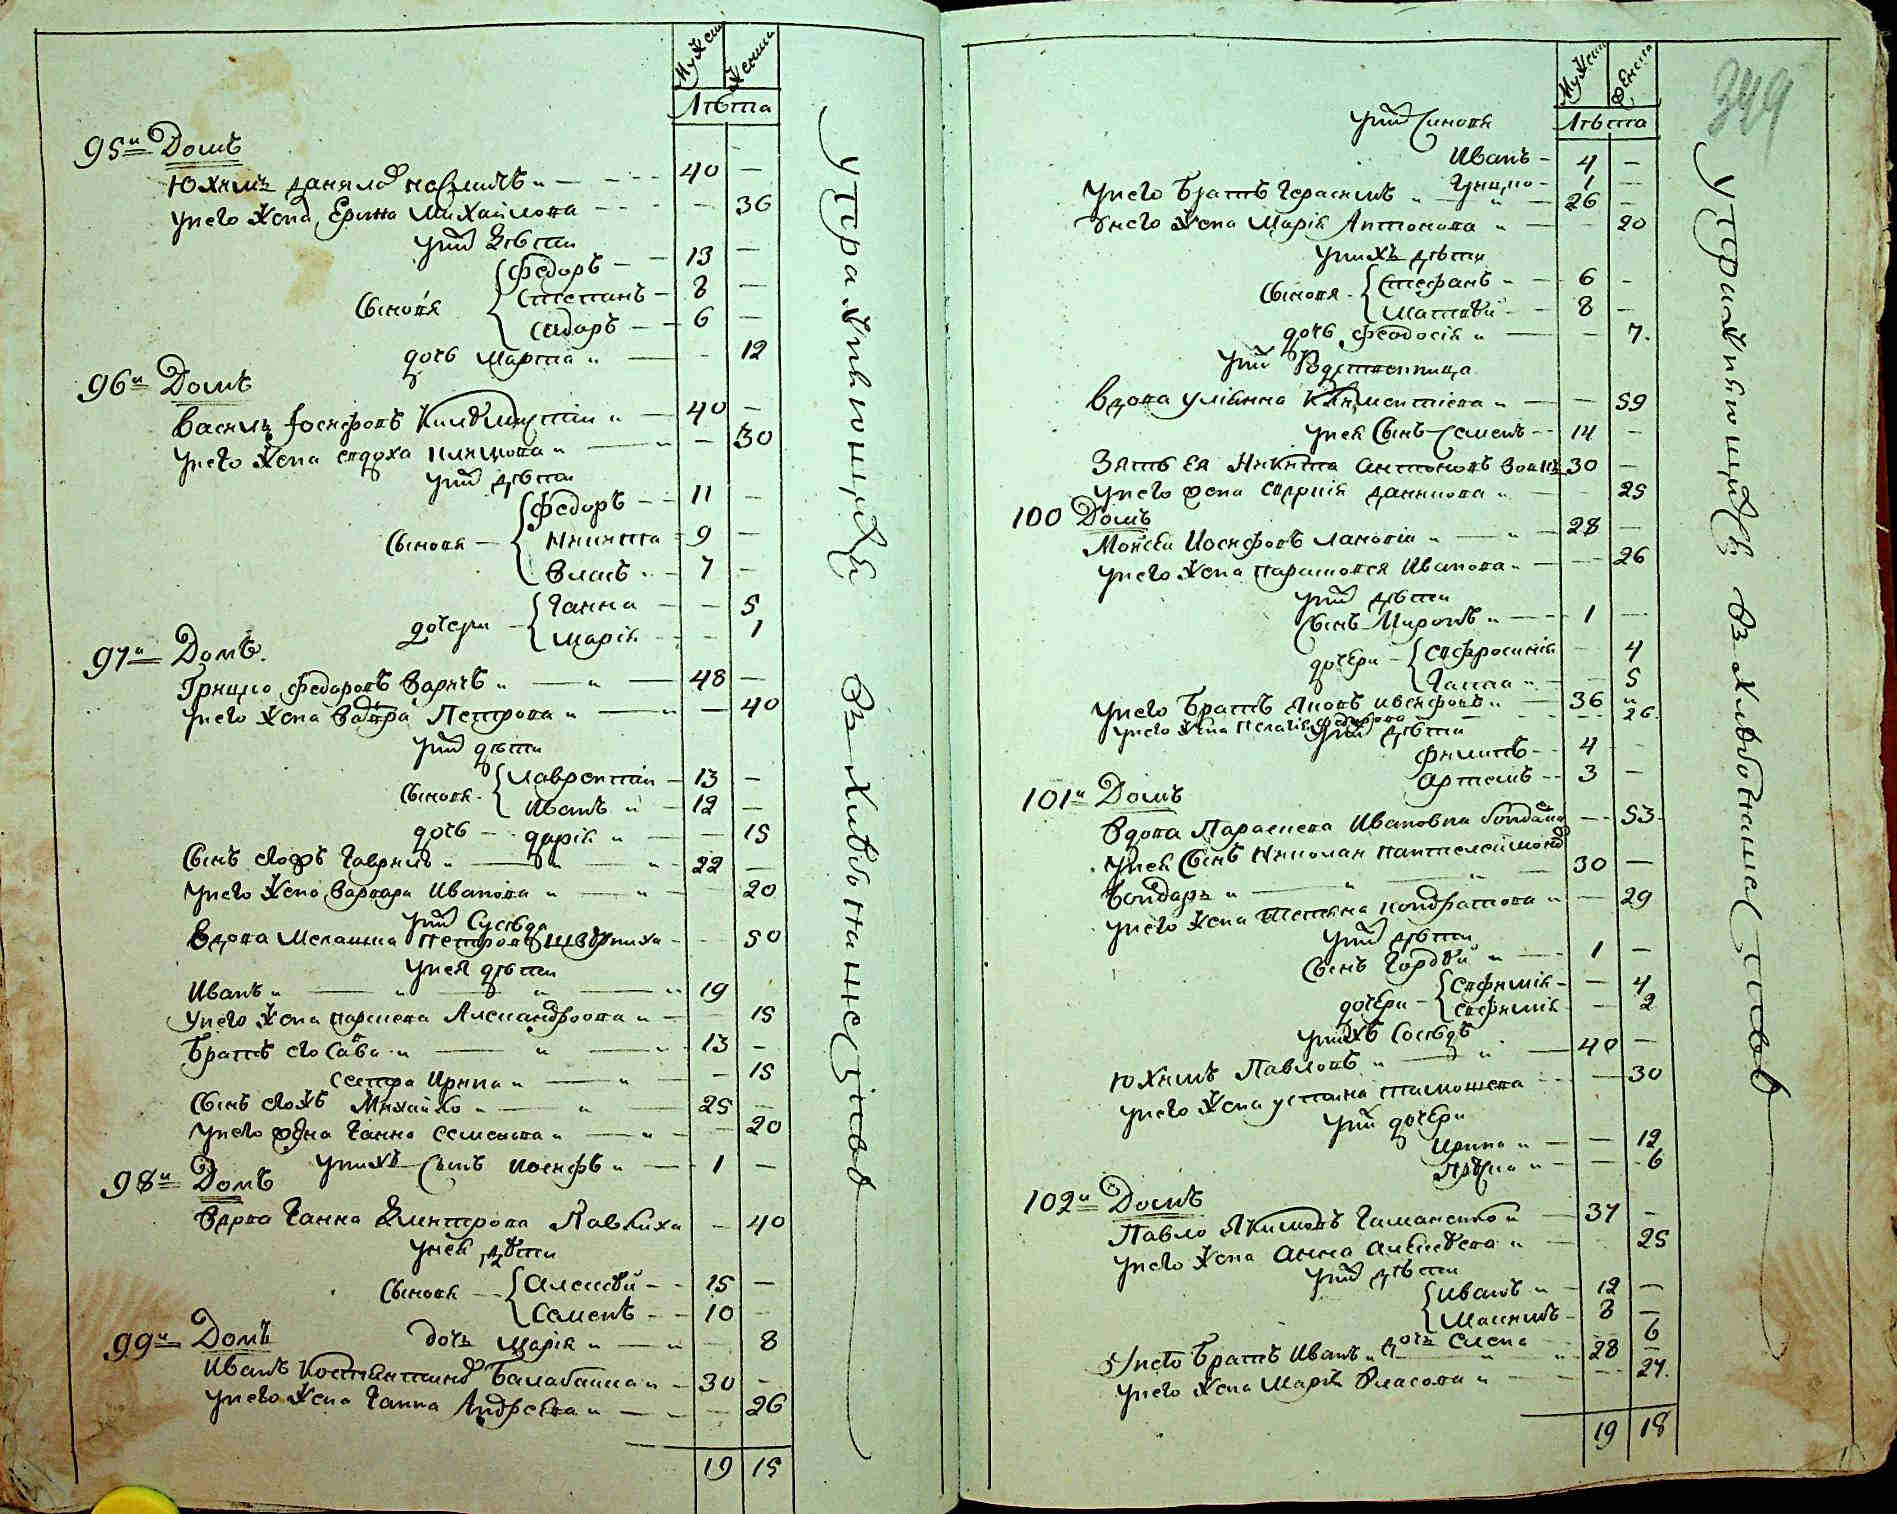 Мужск Женска
Лѣта
95й Домъ
Юхимъ Данилов — 40 —
унего Жена Ерина Михайлова — 36
уних Дѣти
Сыновя { Федоръ — 13 —
Степанъ — 8 —
Сидоръ — 6 —
дочь Марта — 12
96й Домъ
Василь Иосифовъ — 40 —
унего Жена Евдоха — 30
уних дѣти
Сыновя { Федоръ — 11 —
Никита — 9 —
Власъ — 7 —
дочери { Ганна — 5
Марія — 1
97й Домъ
Грицко Федоровъ — 48 —
унего Жена Петрова — 40
уних дѣти
Сыновя { Лаврентий — 13 —
Иванъ — 12 —
дочь — Дарія — 15
Сынъ Гаврило — 22 —
унего Жена Варвара Иванова — 20
уних Сусѣда
Вдова Мелашка Петрова — 50
унея дѣти
Иванъ — 19
унего Жена Параскева Александрова — 15
Братъ его Сава — 13 —
сестра Ирина — 15
Сынъ Михайло — 25 —
унего Жена Ганна Семенова — 20
унихъ Сынъ Иосифъ — 1 —
98й Домъ
Вдова Ганна Дмитрова Павлиха — 40
унея дѣти
Сыновя { Алексѣй — 15 —
Семенъ — 10 —
дочь Марія — 8
99й Домъ
Иванъ Костянтинов — 30 —
унего Жена Ганна Андреева — 26
19 15
упражняющийся в хлѣбопашествѣ
349
Мужск Женска
Лѣта
уних Синовя
Иванъ — 4 —
Грицко — 1 —
унего Братъ Герасимъ — 26 —
унего Жена Марія Антонова — 20
унихъ дѣти
Сыновя { Стефанъ — 6 —
Матвѣй — 8 —
дочь Феодосія — 7
уних Родственница
Вдова Уліянна Климентіева — 59
унея Сынъ Семенъ — 14 —
Зять ея Никита Антоновъ — 30 —
унего Жена Данилова — 25
100 Домъ
Мойсей Иосифовъ — 28 —
унего Жена Парасковея Иванова — 26
уних дѣти
Сынъ Миронъ — 1 —
дочери { Евфросинія — 4
Ганна — 5
унего Братъ Яковъ — 36
унего Жена Пелагія Федорова — 26
уних дѣти
Филипъ — 4
Артемъ — 3 —
101й Домъ
Вдова Параскева Ивановна — 53
унея Сынъ Николай Пантелеймонов
Бондаръ — 30 —
унего Жена Тетяна Кондратова — 29
уних дѣти
Сынъ Гордѣй — 1 —
дочери { Евфимія — 4
Евфимія — 2
унихъ Сосѣдъ
Юхимъ Павловъ — 40 —
унего Жена Устина Тимошева — 30
уних дочери
Ирина — 12
— 6
102й Домъ
Павло Якимовъ — 37 —
унего Жена Анна Алексѣева — 25
уних дѣти
{ Иванъ — 12 —
Максимъ — 8 —
дочь Елена — 6
унего Братъ Иванъ — 28 —
унего Жена Марія Власова — 27
19 18
упражняющийся в хлѣбопашествѣ